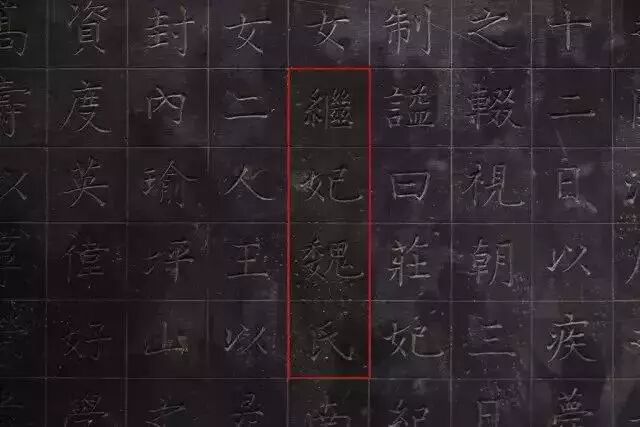 十二日以疾薨
之輟視朝三日
制諡曰莊妃
女繼妃魏氏南
女二人王以
封內瑜坪山
資度英偉好學